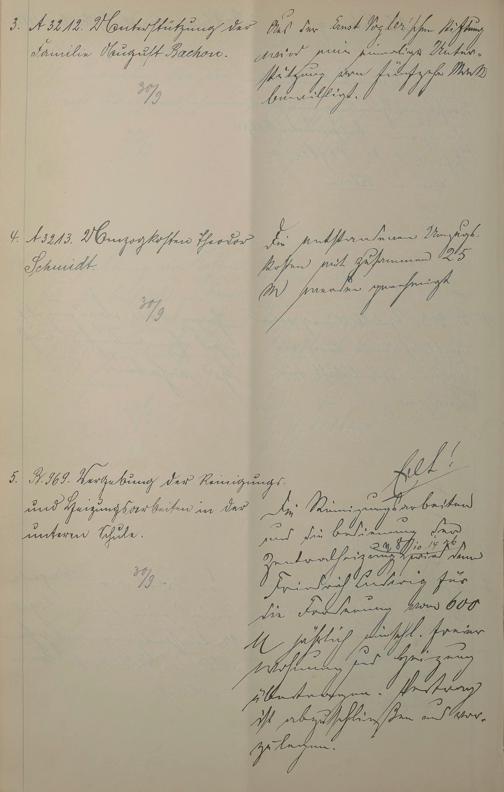 3. A 3212. Unterstützung der
Familie August Bachon.
30/9
Aus der Ernst Vogler'schen Stiftung
wird eine einmalige Unter-
stützung von fünfzehn Mark
bewilligt.
4. A 3213. Umzugkosten Theodor
Schmidt
30/9
Die entstandenen Umzugs-
kosten mit zusammen 25
M werden genehmigt
5. B. 969. Vergebung der Reinigungs-
und Heizungsarbeiten in der
unteren Schule.
30/9.
Eilt!
Die Reinigungsarbeiten
und die Bedienung der
Zentralheizung wird dem
Friedrich Ludwig für
die Forderung von 600
M jährlich einschl. freier
Wohnung und Heizung
übertragen. Vertrag
ist abzuschließen und vor-
zulegen.